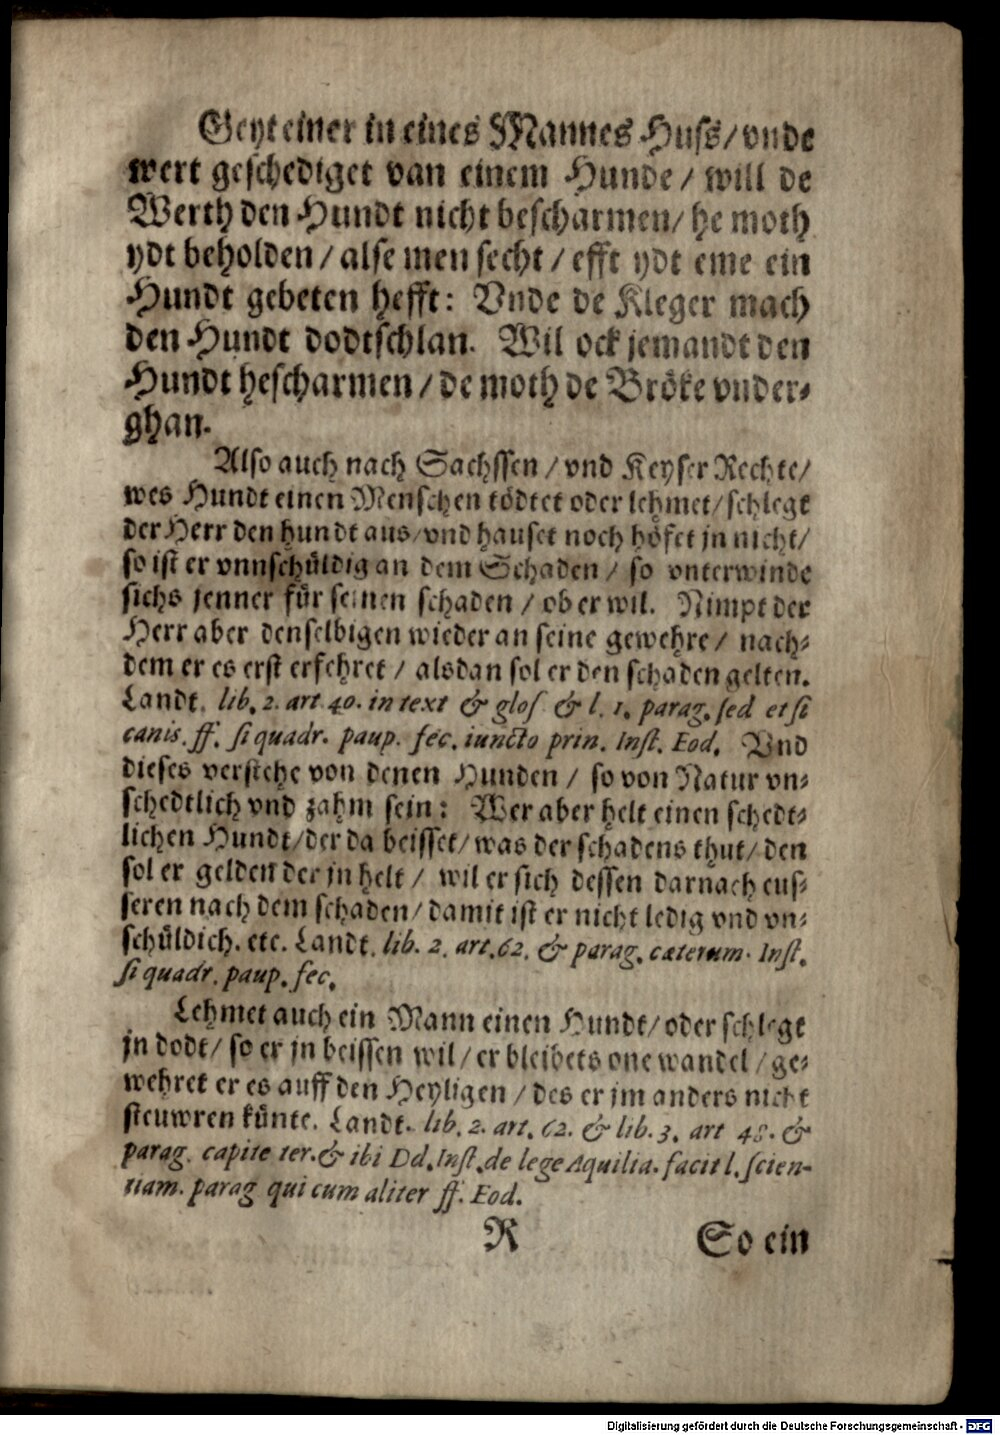 Geyt einer in eines Mannes Huss/ vnde
wert geschediget van einem Hunde/ will de
Werth den Hundt nicht bescharmen/ he moth
ydt beholden/ alse men secht/ efft ydt eme ein
Hundt gebeten hefft: Vnde de Kleger mach
den Hundt dodtschlan. Wil ock jemandt den
Hundt hescharmen/ de moth de Bröke vnder-
ghan.
Also auch nach Sachssen/ vnd Keyser Rechte/
wes Hundt einen Menschen tödtet oder lehmet/ schlegt
der Herr den hundt aus/ vnd hauset noch höfet jn nicht/
so ist er vnnschüldig an dem Schaden/ so vnterwinde
sichs jenner für seinen schaden/ ob er wil. Nimpt der
Herr aber denselbigen wieder an seine gewehre/ nach-
dem er es erst erfehret/ alsdan sol er den schaden gelten.
Landt. lib. 2. art. 40. in text & glos & l. 1. parag. sed et si
canis. ff. si quadr. paup. fec. iuncto prin. Inst. Eod. Vnd
dieses verstehe von denen Hunden/ so von Natur vn-
schedtlich vnd zahm sein: Wer aber helt einen schedt-
lichen Hundt/ der da beisset/ was der schadens thut/ den
sol er gelden der jn helt/ wil er sich dessen darnach eus-
seren nach dem schaden/ damit ist er nicht ledig vnd vn-
schüldich. etc. Landt. lib. 2. art. 62. & parag. cæterum. Inst.
si quadr. paup. fec.
Lehmet auch ein Mann einen Hundt/ oder schlegt
jn dodt/ so er jn beissen wil/ er bleibets one wandel/ ge-
wehret er es auff den Heyligen/ des er jm anders nicht
steuwren künte. Landt. lib. 2. art. 62. & lib. 3. art 48. &
parag. capite ter. & ibi Dd. Inst. de lege Aquilia. facit l. scien-
tiam. parag qui cum aliter ff. Eod.
R So ein
Digitalisierung gefördert durch die Deutsche Forschungsgemeinschaft - DFG